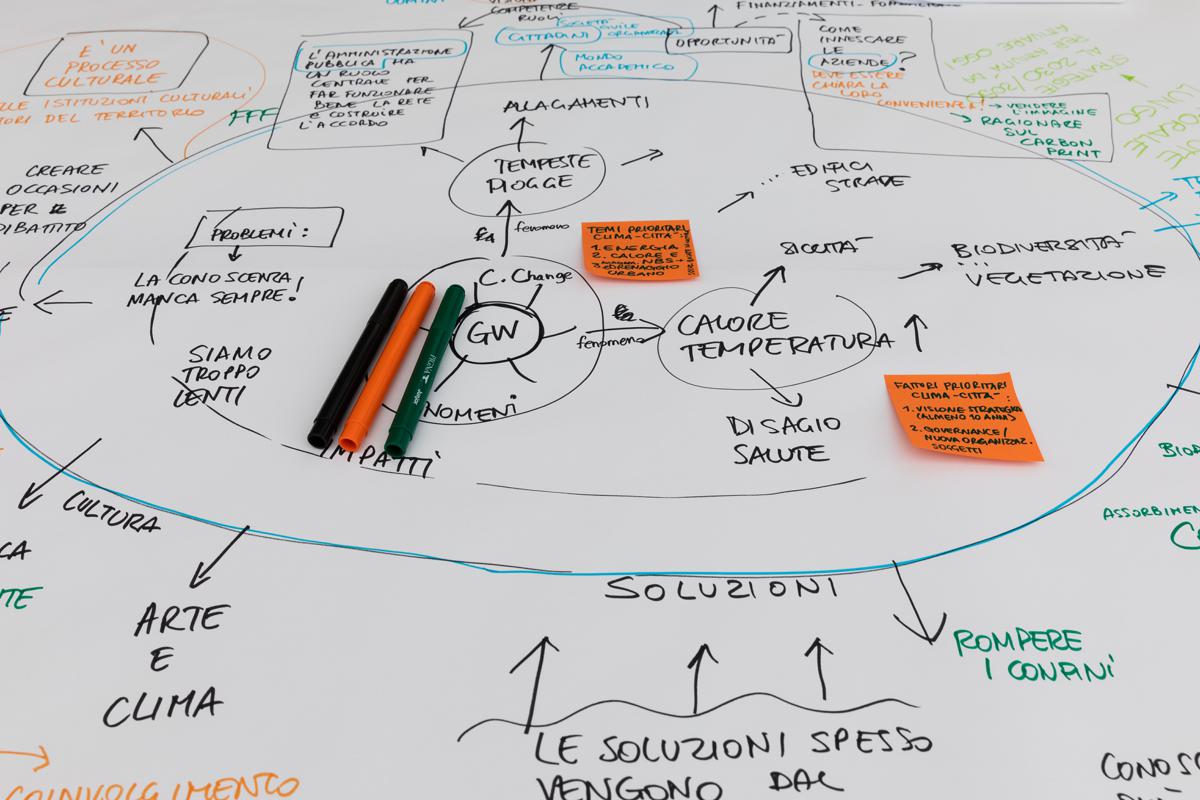 COMPETENZE
RUOLI
FINANZIAMENTI
SOCIETÀ
CIVILE
CITTADINI
MONDO
ACCADEMICO
OPPORTUNITÀ
E' UN
PROCESSO
CULTURALE
ISTITUZIONI CULTURALI
DEL TERRITORIO
FFF
L'AMMINISTRAZIONE
PUBBLICA HA
UN RUOLO
CENTRALE PER
FAR FUNZIONARE
BENE LA RETE
E COSTRUIRE
L'ACCORDO
COME
INNESCARE
LE
AZIENDE?
DEVE ESSERE
CHIARA LA
LORO
CONVENIENZA!
VENDERE
L'IMMAGINE
RAGIONARE
SUL
CARBON
PRINT
ALLAGAMENTI
TEMPESTE
PIOGGE
fenomeno
... EDIFICI
STRADE
CREARE
OCCASIONI
PER IL
DIBATTITO
PROBLEMI:
LA CONOSCENZA
MANCA SEMPRE!
SIAMO
TROPPO
LENTI
TEMI PRIORITARI
CLIMA-CITTÀ:
1. ENERGIA
2. CALORE E
NBS
3. DRENAGGIO
URBANO
C. Change
GW
NOMENI
IMPATTI
fa
fenomeno
CALORE
TEMPERATURA
SICCITÀ
BIODIVERSITÀ
...
VEGETAZIONE
DISAGIO
SALUTE
FATTORI PRIORITARI
CLIMA-CITTÀ:
1. VISIONE STRATEGICA
(ALMENO 10 ANNI)
2. GOVERNANCE/
NUOVA ORGANIZZAZ.
SOGGETTI
CULTURA
ARTE
E
CLIMA
SOLUZIONI
ROMPERE
I CONFINI
LE SOLUZIONI SPESSO
VENGONO DAL
COINVOLGIMENTO